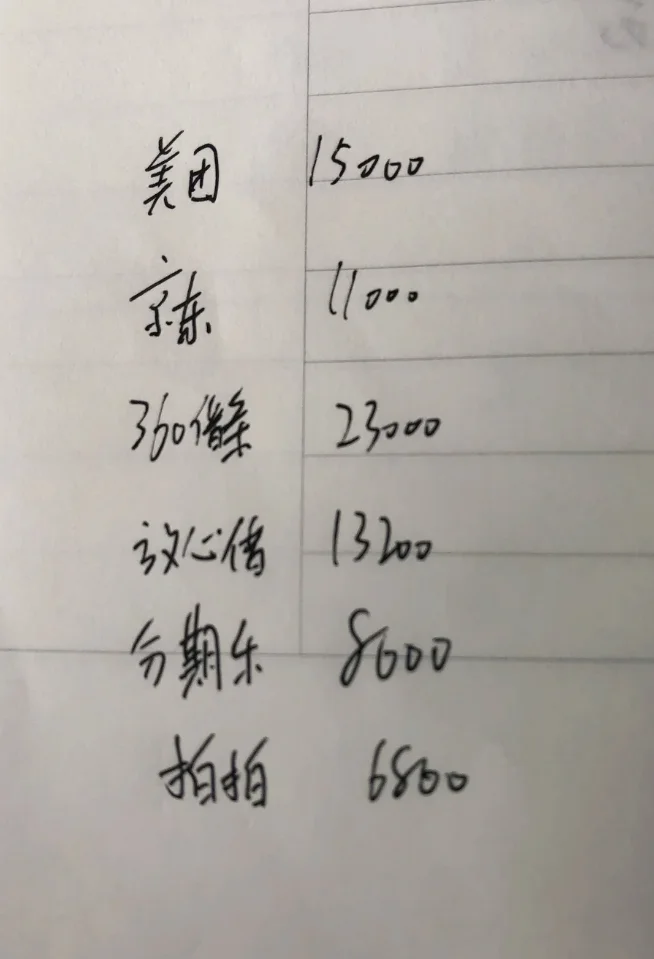 美团 15000
京东 11000
360借条 23000
放心借 13200
分期乐 8600
拍拍 6800